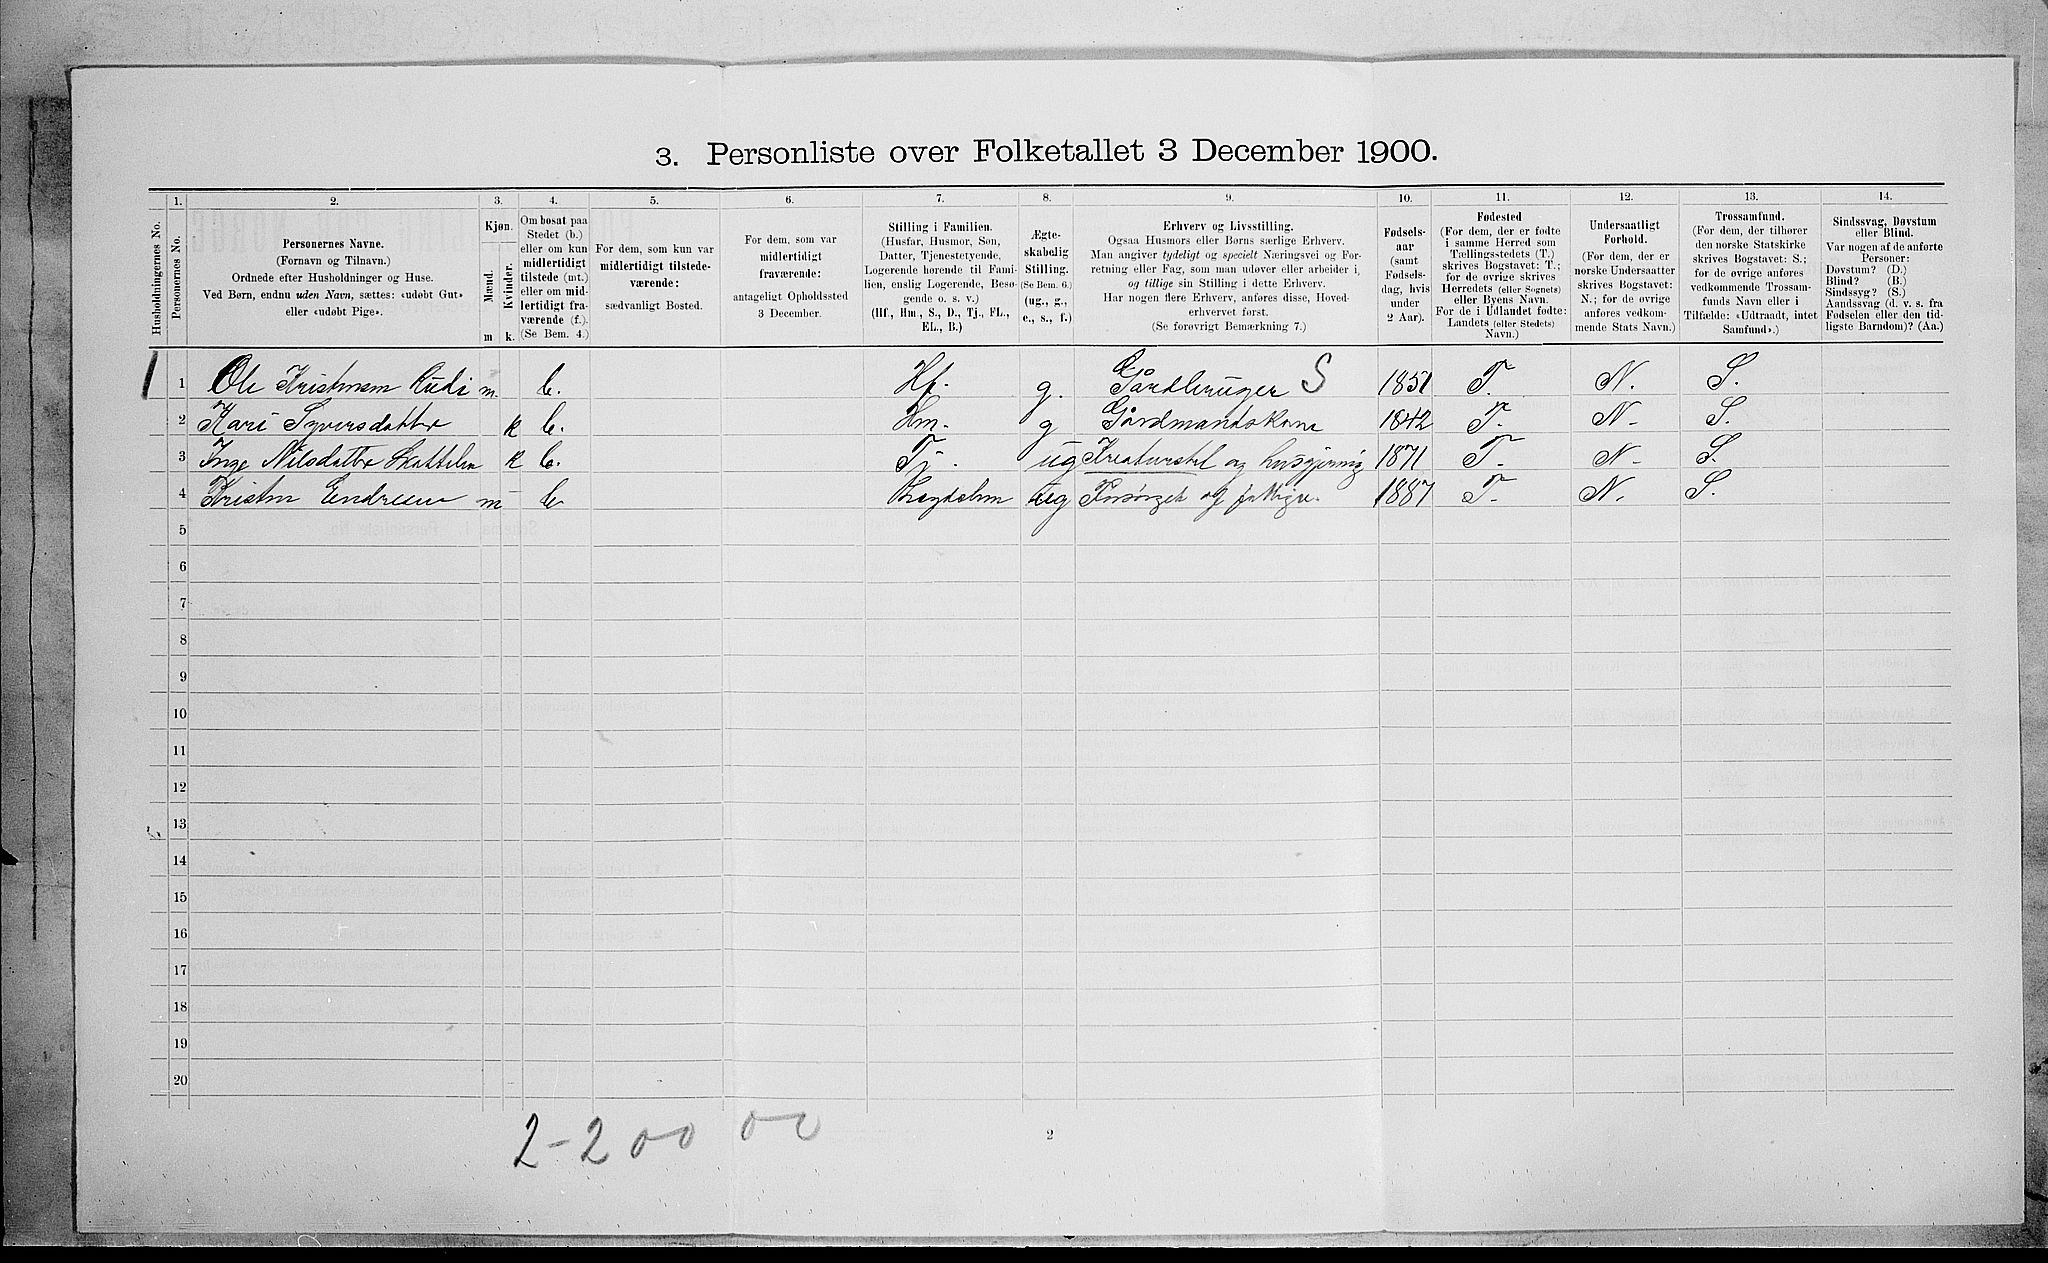 3. Personliste over Folketallet 3 December 1900.
1. 2. 3. 4. 5. 6. 7. 8. 9. 10. 11. 12. 13. 14.
Husholdningernes No.
Personernes No.
Personernes Navne.
(Fornavn og Tilnavn.)
Ordnede efter Husholdninger og Huse.
Ved Børn, endnu uden Navn, sættes: «udøbt Gut»
eller «udøbt Pige».
Kjøn.
Mænd.
Kvinder.
m k.
Om bosat paa
Stedet (b.)
eller om kun
midlertidigt
tilstede (mt.)
eller om mid-
lertidigt fra-
værende (f.).
(Se Bem. 4.)
For dem, som kun var
midlertidigt tilstede-
værende:
sædvanligt Bosted.
For dem, som var
midlertidigt
fraværende:
antageligt Opholdssted
3 December.
Stilling i Familien.
(Husfar, Husmor, Søn,
Datter, Tjenestetyende,
Logerende hørende til Fami-
lien, enslig Logerende, Besø-
gende o. s. v.)
(Hf., Hm., S., D., Tj., FL.,
EL., B.)
Ægte-
skabelig
Stilling.
(Se Bem. 6.)
(ug., g.,
e., s., f.)
Erhverv og Livsstilling.
Ogsaa Husmors eller Børns særlige Erhverv.
Man angiver tydeligt og specielt Næringsvei og For-
retning eller Fag, som man udøver eller arbeider i,
og tillige sin Stilling i dette Erhverv.
Har nogen flere Erhverv, anføres disse, Hoved-
erhvervet først.
(Se forøvrigt Bemærkning 7.)
Fødsels-
aar
(samt
Fødsels-
dag, hvis
under
2 Aar).
Fødested
(For dem, der er fødte
i samme Herred som
Tællingsstedets (T.)
skrives Bogstavet: T.;
for de øvrige skrives
Herredets (eller Sognets)
eller Byens Navn.
For de i Udlandet fødte:
Landets (eller Stedets)
Navn.)
Undersaatligt
Forhold.
(For dem, der er
norske Undersaatter
skrives Bogstavet:
N.; for de øvrige
anføres vedkom-
mende Stats Navn.)
Trossamfund.
(For dem, der tilhører
den norske Statskirke
skrives Bogstavet: S.;
for de øvrige anføres
vedkommende Trossam-
funds Navn eller i
Tilfælde: «Udtraadt, intet
Samfund».)
Sindssvag, Døvstum
eller Blind.
Var nogen af de anførte
Personer:
Døvstum? (D.)
Blind? (B.)
Sindssyg? (S.)
Aandssvag (d. v. s. fra
Fødselen eller den tid-
ligste Barndom)? (Aa.)
1 1 Ole Kristensen Rudi m. b. Hf. g. Gårdbruger S 1851 T. N. S.
2 Kari Syversdatter k b. Hm. g Gårdmandskone 1842 T. N. S.
3 Inge Nilsdatter k b. Tj. ug Kreaturstel og husgjerning 1871 T. N. S.
4 Kristen Endresen m b Legdslem ug Forsørget af fattigv. 1887 T. N. S.
5
6
7
8
9
10
11
12
13
14
15
16
17
18
19
20
2-2 00 00
2